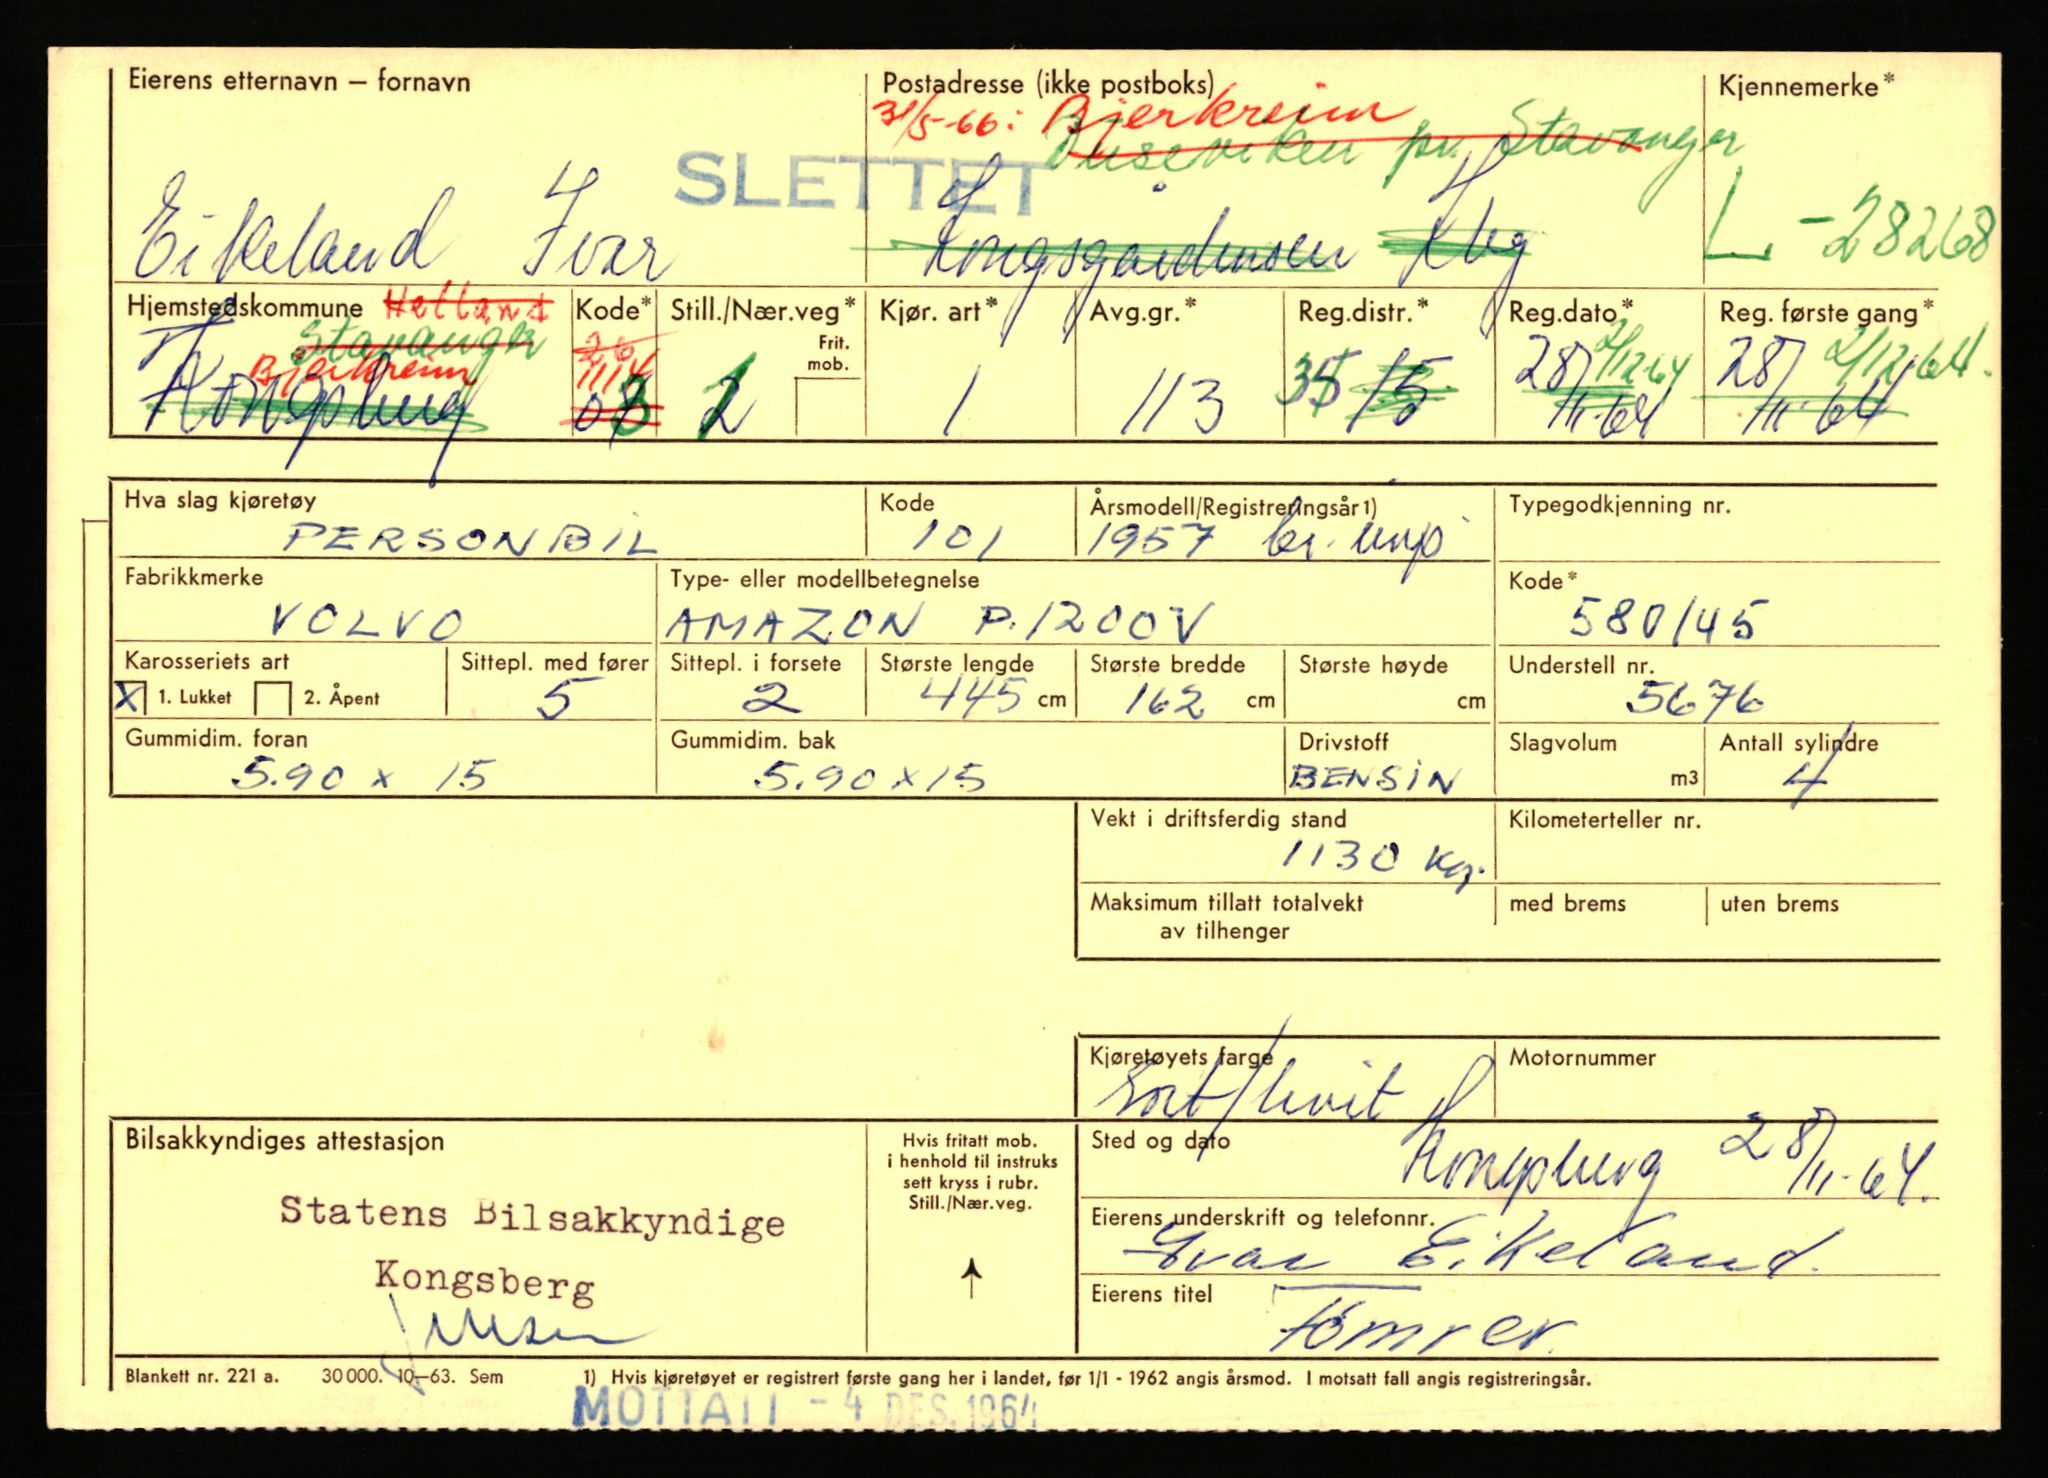 Eierens etternavn – fornavn
Postadresse (ikke postboks)
Kjennemerke*
31/5-66: Bjerkreim
Duseviken pr. Stavanger
SLETTET
Eikeland Ivar
Kbg
L-28268
Hjemstedskommune Helland
Kode*
Still./Nær.veg*
Kjør. art*
Avg.gr.*
Reg.distr.*
Reg.dato*
Reg. første gang*
Stavanger
26
Frit. mob.
2/12-64
2/12-64.
Bjerkreim
1114
Kongsberg
2
1
113
35 15
28/11-64
28/11-64
Hva slag kjøretøy
Kode
Årsmodell/Registreringsår1)
Typegodkjenning nr.
PERSONBIL
101
1957 br. imp
Fabrikkmerke
Type- eller modellbetegnelse
Kode*
VOLVO
AMAZON P.1200V
580/45
Karosseriets art
Sittepl. med fører
Sittepl. i forsete
Største lengde
Største bredde
Største høyde
Understell nr.
X 1. Lukket
2. Åpent
5
2
445 cm
162 cm
cm
5676
Gummidim. foran
Gummidim. bak
Drivstoff
Slagvolum
Antall sylindre
5.90 x 15
5.90 x 15
BENSIN
m3
4
Vekt i driftsferdig stand
Kilometerteller nr.
1130 Kg.
Maksimum tillatt totalvekt
med brems
uten brems
av tilhenger
Kjøretøyets farge
Motornummer
Sort/hvit
Bilsakkyndiges attestasjon
Hvis fritatt mob.
i henhold til instruks
sett kryss i rubr.
Still./Nær.veg.
Sted og dato
Kongsberg 28/11-64.
Statens Bilsakkyndige
Kongsberg
Eierens underskrift og telefonnr.
Ivar Eikeland.
Eierens titel
Tömrer.
Blankett nr. 221 a. 30 000. 10–63. Sem
1) Hvis kjøretøyet er registrert første gang her i landet, før 1/1 - 1962 angis årsmod. I motsatt fall angis registreringsår.
MOTTATT - 4 DES. 1964